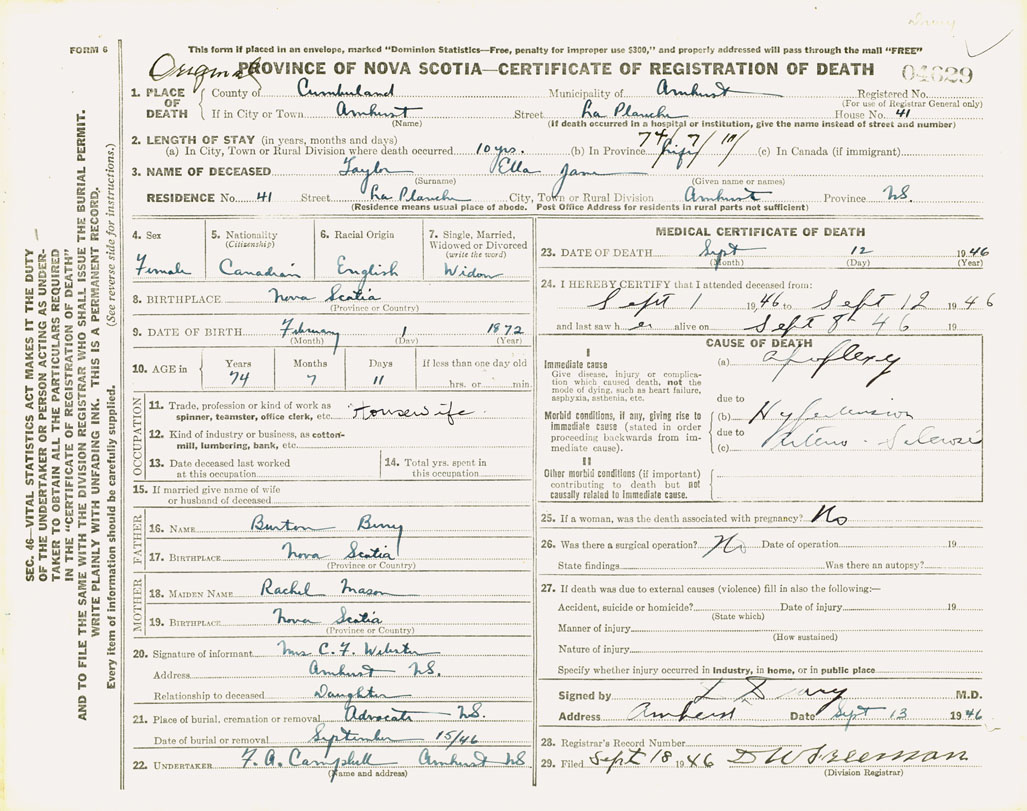 FORM 6
This form if placed in an envelope, marked "Dominion Statistics—Free, penalty for improper use $300," and properly addressed will pass through the mail "FREE"
Original
PROVINCE OF NOVA SCOTIA—CERTIFICATE OF REGISTRATION OF DEATH
04629
1. PLACE OF DEATH
County of Cumberland Municipality of Amherst Registered No.
(For use of Registrar General only)
If in City or Town Amherst Street La Planche House No. 41
(Name) (If death occurred in a hospital or institution, give the name instead of street and number)
2. LENGTH OF STAY (in years, months and days)
74/ 7/ 10/
(a) In City, Town or Rural Division where death occurred 10 yrs. (b) In Province life (c) In Canada (if immigrant)
3. NAME OF DECEASED Taylor Ella Jane
(Surname) (Given name or names)
RESIDENCE No. 41 Street La Planche City, Town or Rural Division Amherst Province NS.
(Residence means usual place of abode. Post Office Address for residents in rural parts not sufficient)
4. Sex
Female
5. Nationality
(Citizenship)
Canadian
6. Racial Origin
English
7. Single, Married, Widowed or Divorced
(write the word)
Widow
8. BIRTHPLACE Nova Scotia
(Province or Country)
9. DATE OF BIRTH February 1 1872
(Month) (Day) (Year)
10. AGE in
Years Months Days If less than one day old
74 7 11 hrs. or min.
OCCUPATION
11. Trade, profession or kind of work as
spinner, teamster, office clerk, etc. Housewife
12. Kind of industry or business, as cotton-
mill, lumbering, bank, etc.
13. Date deceased last worked
at this occupation
14. Total yrs. spent in
this occupation
15. If married give name of wife
or husband of deceased
FATHER
16. NAME Burton Berry
17. BIRTHPLACE Nova Scotia
(Province or Country)
MOTHER
18. MAIDEN NAME Rachel Mason
19. BIRTHPLACE Nova Scotia
(Province or Country)
20. Signature of informant Mrs C. F. Webster
Address Amherst NS.
Relationship to deceased Daughter
21. Place of burial, cremation or removal Advocate NS.
Date of burial or removal September 15/46
22. UNDERTAKER F. A. Campbell Amherst NS
(Name and address)
MEDICAL CERTIFICATE OF DEATH
23. DATE OF DEATH Sept 12 1946
(Month) (Day) (Year)
24. I HEREBY CERTIFY that I attended deceased from:
Sept 1 1946 to Sept 12 1946
and last saw her alive on Sept 8th 46 19
CAUSE OF DEATH
I
Immediate cause
Give disease, injury or complica-
tion which caused death, not the
mode of dying, such as heart failure,
asphyxia, asthenia, etc.
(a) Apoplexy
due to
Morbid conditions, if any, giving rise to
immediate cause (stated in order
proceeding backwards from im-
mediate cause).
(b) Hypertension
due to
(c) Arterio-Sclerosis
II
Other morbid conditions (if important)
contributing to death but not
causally related to immediate cause.
25. If a woman, was the death associated with pregnancy? No
26. Was there a surgical operation? No Date of operation 19
State findings Was there an autopsy?
27. If death was due to external causes (violence) fill in also the following:—
Accident, suicide or homicide? Date of injury 19
(State which)
Manner of injury
(How sustained)
Nature of injury
Specify whether injury occurred in industry, in home, or in public place
Signed by M.D.
Address Amherst Date Sept 13 1946
28. Registrar's Record Number
29. Filed Sept 18 1946 D W Freeman
(Division Registrar)
SEC. 46—VITAL STATISTICS ACT MAKES IT THE DUTY
OF THE UNDERTAKER OR PERSON ACTING AS UNDER-
TAKER TO OBTAIN ALL THE PARTICULARS REQUIRED
IN THE "CERTIFICATE OF REGISTRATION OF DEATH"
AND TO FILE THE SAME WITH THE DIVISION REGISTRAR WHO SHALL ISSUE THE BURIAL PERMIT.
WRITE PLAINLY WITH UNFADING INK. THIS IS A PERMANENT RECORD.
Every item of information should be carefully supplied. (See reverse side for instructions.)